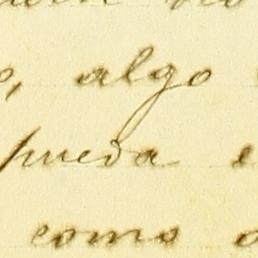 algo
pueda
como